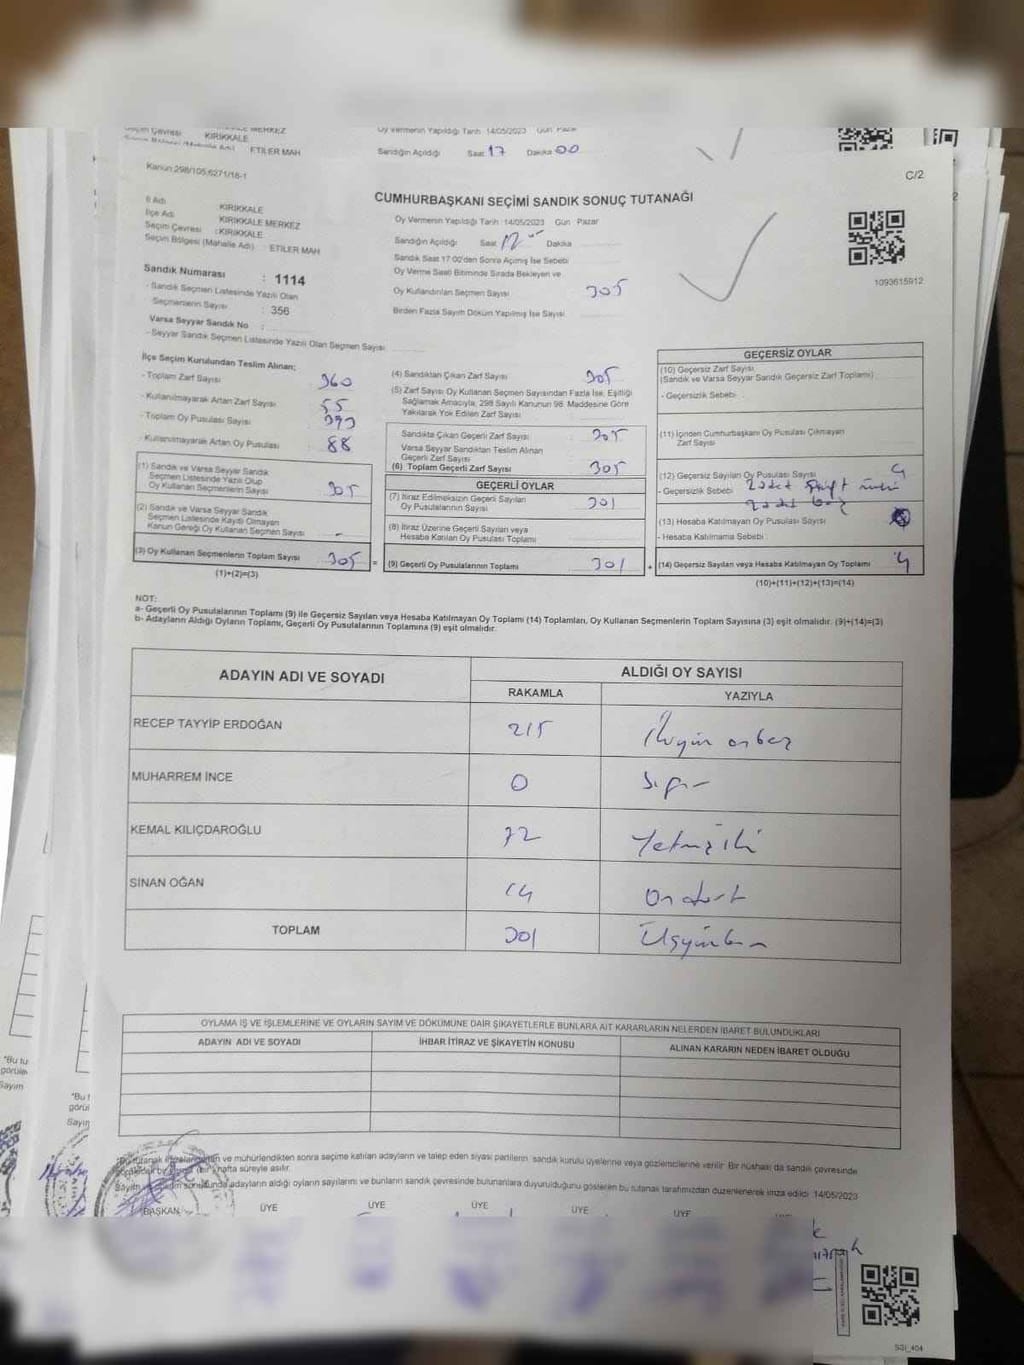 KIRIKKALE
ETİLER MAH
Oy Vermenin Yapıldığı Tarih :14/05/2023 Gün : Pazar
Sandığın Açıldığı Saat 17 Dakika 00
Kanun:298/105,6271/18-1
C/2
CUMHURBAŞKANI SEÇİMİ SANDIK SONUÇ TUTANAĞI
İl Adı : KIRIKKALE
İlçe Adı : KIRIKKALE MERKEZ
Seçim Çevresi : KIRIKKALE
Seçim Bölgesi (Mahalle Adı) : ETİLER MAH
Oy Vermenin Yapıldığı Tarih :14/05/2023 Gün : Pazar
Sandığın Açıldığı Saat Dakika
Sandık Saat 17:00'den Sonra Açılmış İse Sebebi
Oy Verme Saati Bitiminde Sırada Bekleyen ve
Oy Kullandırılan Seçmen Sayısı 305
Birden Fazla Sayım Döküm Yapılmış İse Sayısı
1093615912
Sandık Numarası : 1114
- Sandık Seçmen Listesinde Yazılı Olan
Seçmenlerin Sayısı : 356
Varsa Seyyar Sandık No :
- Seyyar Sandık Seçmen Listesinde Yazılı Olan Seçmen Sayısı
İlçe Seçim Kurulundan Teslim Alınan;
- Toplam Zarf Sayısı 360
- Kullanılmayarak Artan Zarf Sayısı 55
- Toplam Oy Pusulası Sayısı 393
- Kullanılmayarak Artan Oy Pusulası 88
(1) Sandık ve Varsa Seyyar Sandık
Seçmen Listesinde Yazılı Olup
Oy Kullanan Seçmenlerin Sayısı 305
(2) Sandık ve Varsa Seyyar Sandık
Seçmen Listesinde Kaydı Olmayan
Kanun Gereği Oy Kullanan Seçmen Sayısı -
(3) Oy Kullanan Seçmenlerin Toplam Sayısı 305
(1)+(2)=(3)
(4) Sandıktan Çıkan Zarf Sayısı 305
(5) Zarf Sayısı Oy Kullanan Seçmen Sayısından Fazla İse, Eşitliği
Sağlamak Amacıyla, 298 Sayılı Kanunun 98. Maddesine Göre
Yakılarak Yok Edilen Zarf Sayısı
Sandıkta Çıkan Geçerli Zarf Sayısı 305
Varsa Seyyar Sandıktan Teslim Alınan
Geçerli Zarf Sayısı
(6) Toplam Geçerli Zarf Sayısı 305
GEÇERLİ OYLAR
(7) İtiraz Edilmeksizin Geçerli Sayılan
Oy Pusulalarının Sayısı 301
(8) İtiraz Üzerine Geçerli Sayılan veya
Hesaba Katılan Oy Pusulası Toplamı
= (9) Geçerli Oy Pusulalarının Toplamı 301
GEÇERSİZ OYLAR
(10) Geçersiz Zarf Sayısı
(Sandık ve Varsa Seyyar Sandık Geçersiz Zarf Toplamı)
- Geçersizlik Sebebi
(11) İçinden Cumhurbaşkanı Oy Pusulası Çıkmayan
Zarf Sayısı
(12) Geçersiz Sayılan Oy Pusulası Sayısı 4
- Geçersizlik Sebebi 2 adet çift mühür
2 adet boş
(13) Hesaba Katılmayan Oy Pusulası Sayısı
- Hesaba Katılmama Sebebi
+ (14) Geçersiz Sayılan veya Hesaba Katılmayan Oy Toplamı 4
(10)+(11)+(12)+(13)=(14)
NOT:
a- Geçerli Oy Pusulalarının Toplamı (9) ile Geçersiz Sayılan veya Hesaba Katılmayan Oy Toplamı (14) Toplamları, Oy Kullanan Seçmenlerin Toplam Sayısına (3) eşit olmalıdır. (9)+(14)=(3)
b- Adayların Aldığı Oyların Toplamı, Geçerli Oy Pusulalarının Toplamına (9) eşit olmalıdır.
ADAYIN ADI VE SOYADI ALDIĞI OY SAYISI
RAKAMLA YAZIYLA
RECEP TAYYİP ERDOĞAN 215 İkiyüz onbeş
MUHARREM İNCE 0 Sıfır
KEMAL KILIÇDAROĞLU 72 Yetmişiki
SİNAN OĞAN 14 Ondört
TOPLAM 301 Üçyüzbir
OYLAMA İŞ VE İŞLEMLERİNE VE OYLARIN SAYIM VE DÖKÜMÜNE DAİR ŞİKAYETLERLE BUNLARA AİT KARARLARIN NELERDEN İBARET BULUNDUKLARI
ADAYIN ADI VE SOYADI İHBAR İTİRAZ VE ŞİKAYETİN KONUSU ALINAN KARARIN NEDEN İBARET OLDUĞU
ve mühürlendikten sonra seçime katılan adayların ve talep eden siyasi partilerin sandık kurulu üyelerine veya gözlemcilerine verilir. Bir nüshası da sandık çevresinde
hafta süreyle asılır.
sonucunda adayların aldığı oyların sayılarını ve bunların sandık çevresinde bulunanlara duyurulduğunu gösteren bu tutanak tarafımızdan düzenlenerek imza edildi. 14/05/2023
BAŞKAN ÜYE ÜYE ÜYE ÜYE ÜYE
SSİ_404